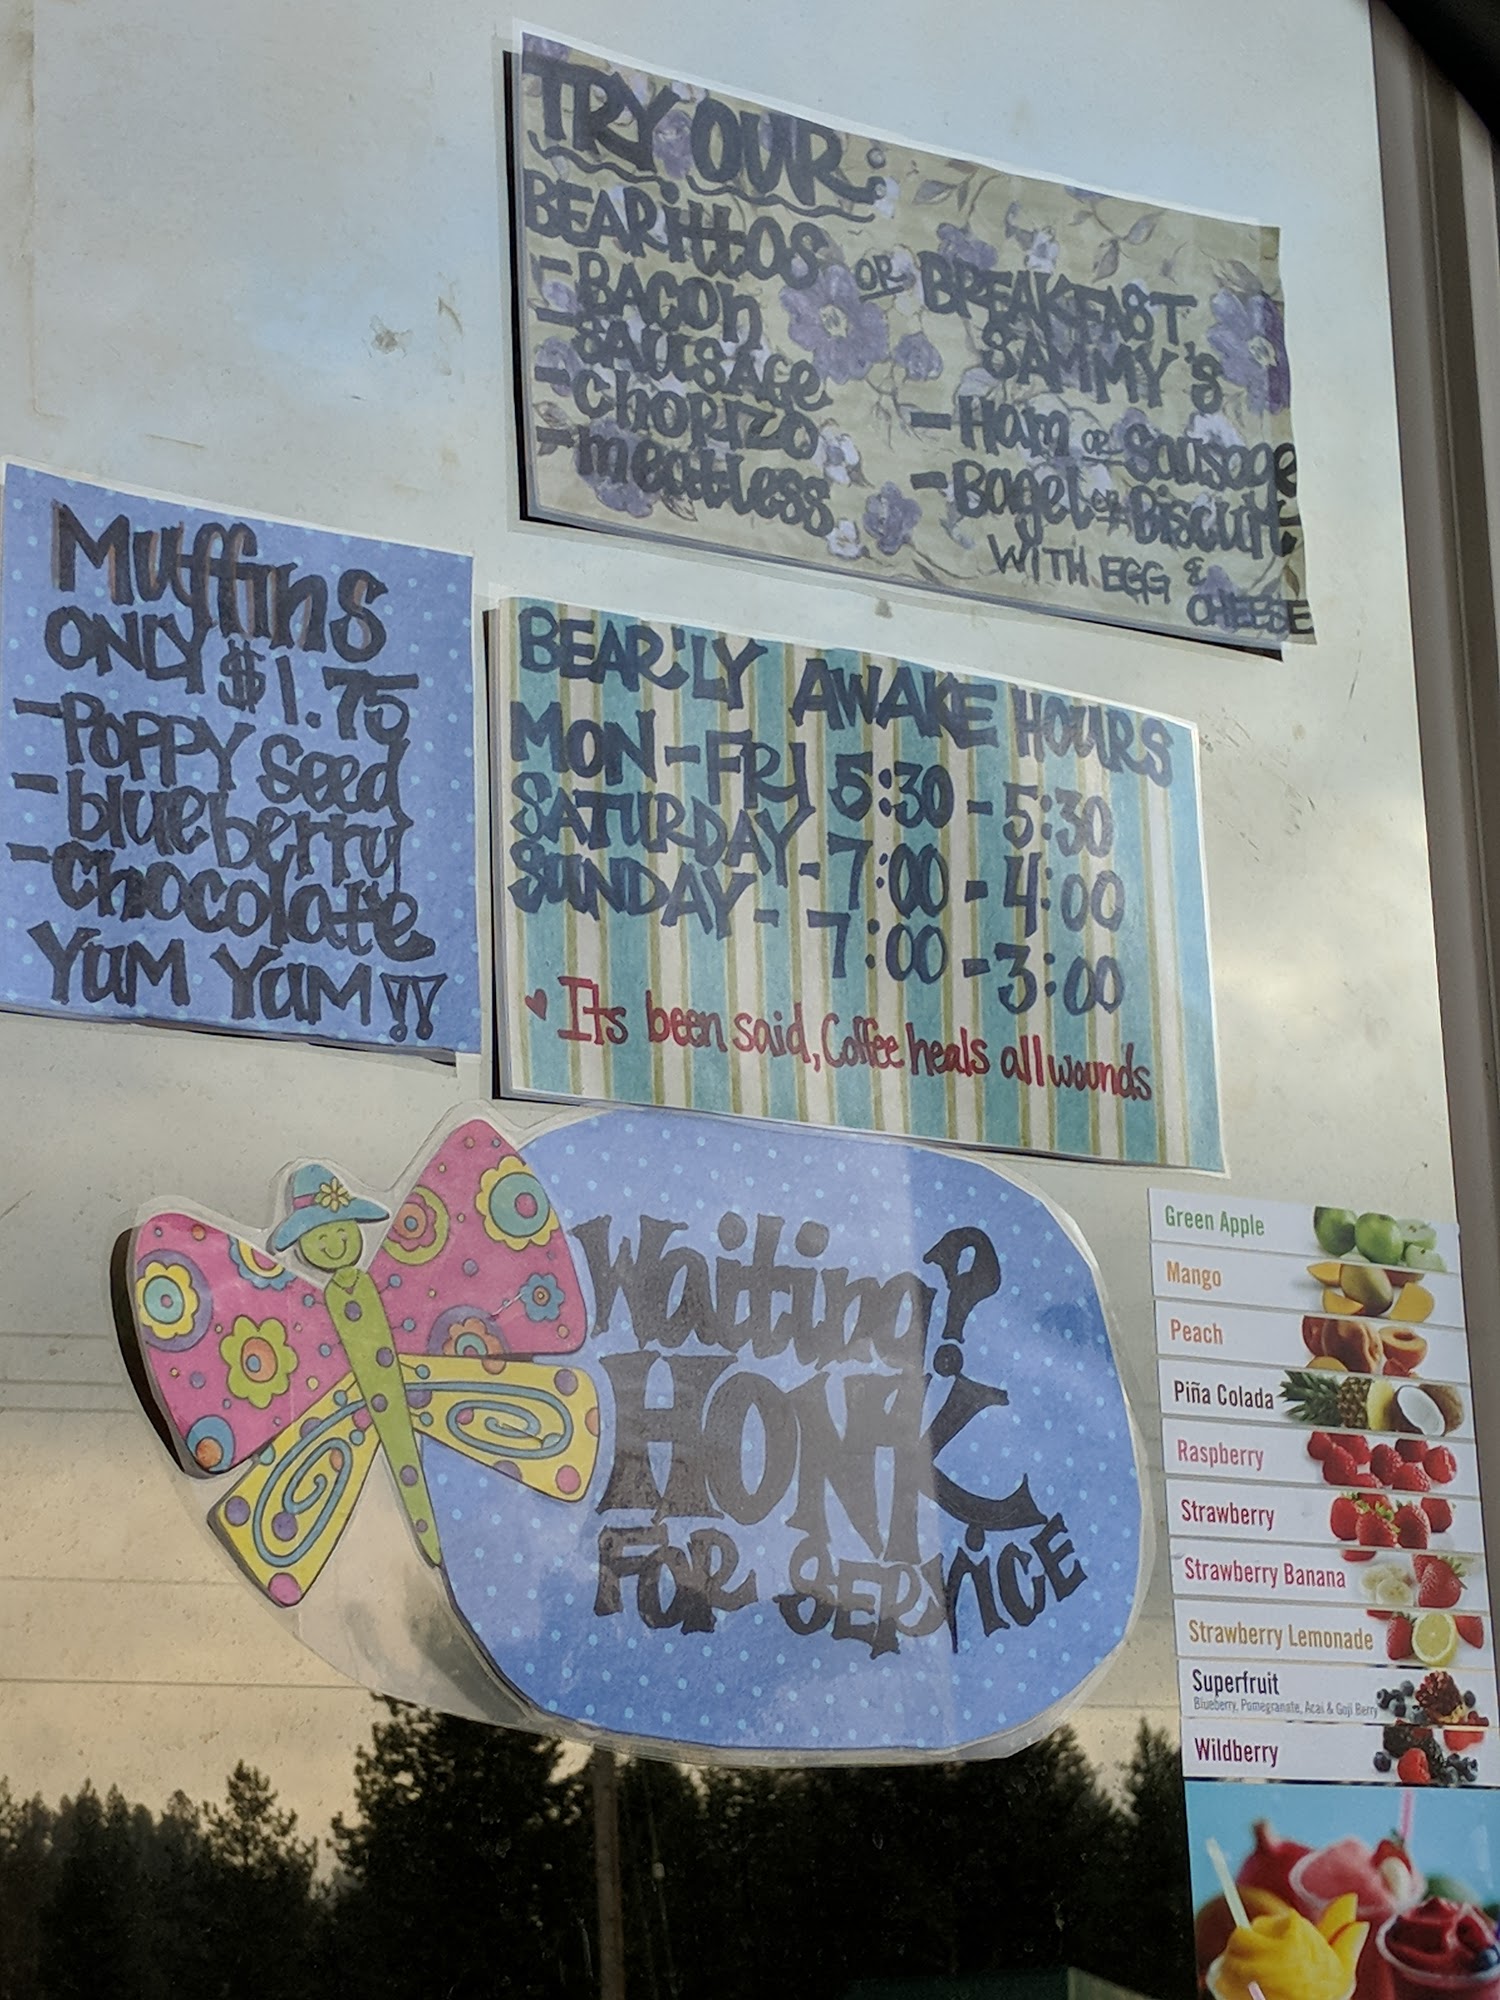 TRY OUR:
BEARittOS OR BREAKFAST SAMMY'S
-BACON
-SAUSAGE
-ChORIZO
-meatless
-Ham OR Sausage
-Bagel OR Biscuit
WITH EGG & CHEESE
Muffins
ONLY $1.75
-POPPY Seed
-blueberry
-Chocolate
YUM YUM!!
BEAR'LY AWAKE HOURS
MON-FRI 5:30-5:30
SATURDAY-7:00-4:00
SUNDAY-7:00-3:00
♥ Its been said, Coffee heals all wounds
Waiting?
HONK
FOR SERViCE
Green Apple
Mango
Peach
Piña Colada
Raspberry
Strawberry
Strawberry Banana
Strawberry Lemonade
Superfruit
Blueberry, Pomegranate, Acai & Goji Berry
Wildberry